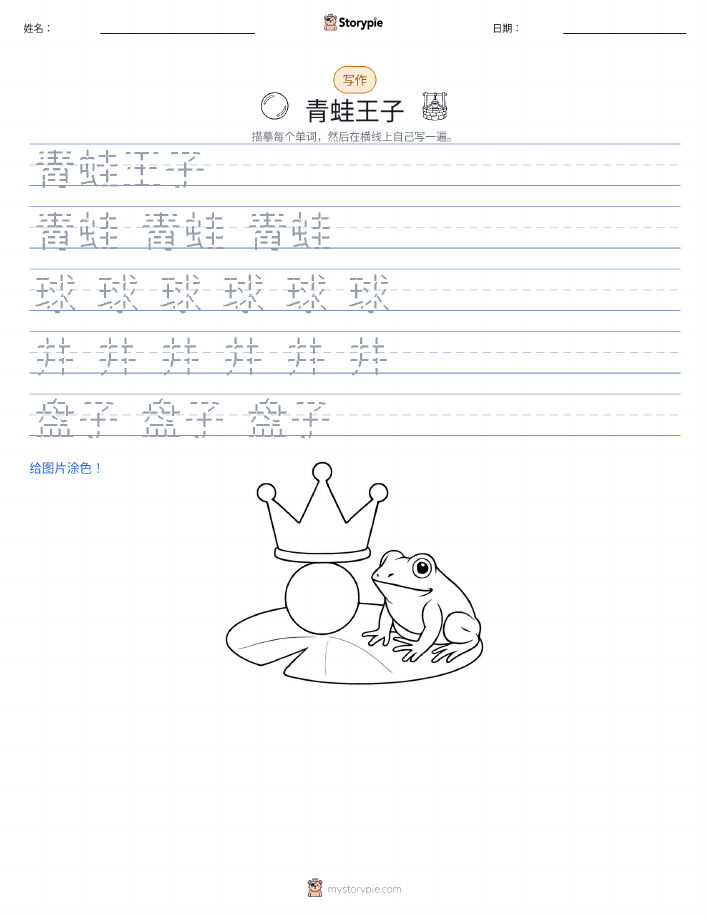 Storypie
姓名： 日期：
写作
青蛙王子
描摹每个单词，然后在横线上自己写一遍。
青蛙王子
青蛙 青蛙 青蛙
球 球 球 球 球 球
井 井 井 井 井 井
盘子 盘子 盘子
给图片涂色！
mystorypie.com